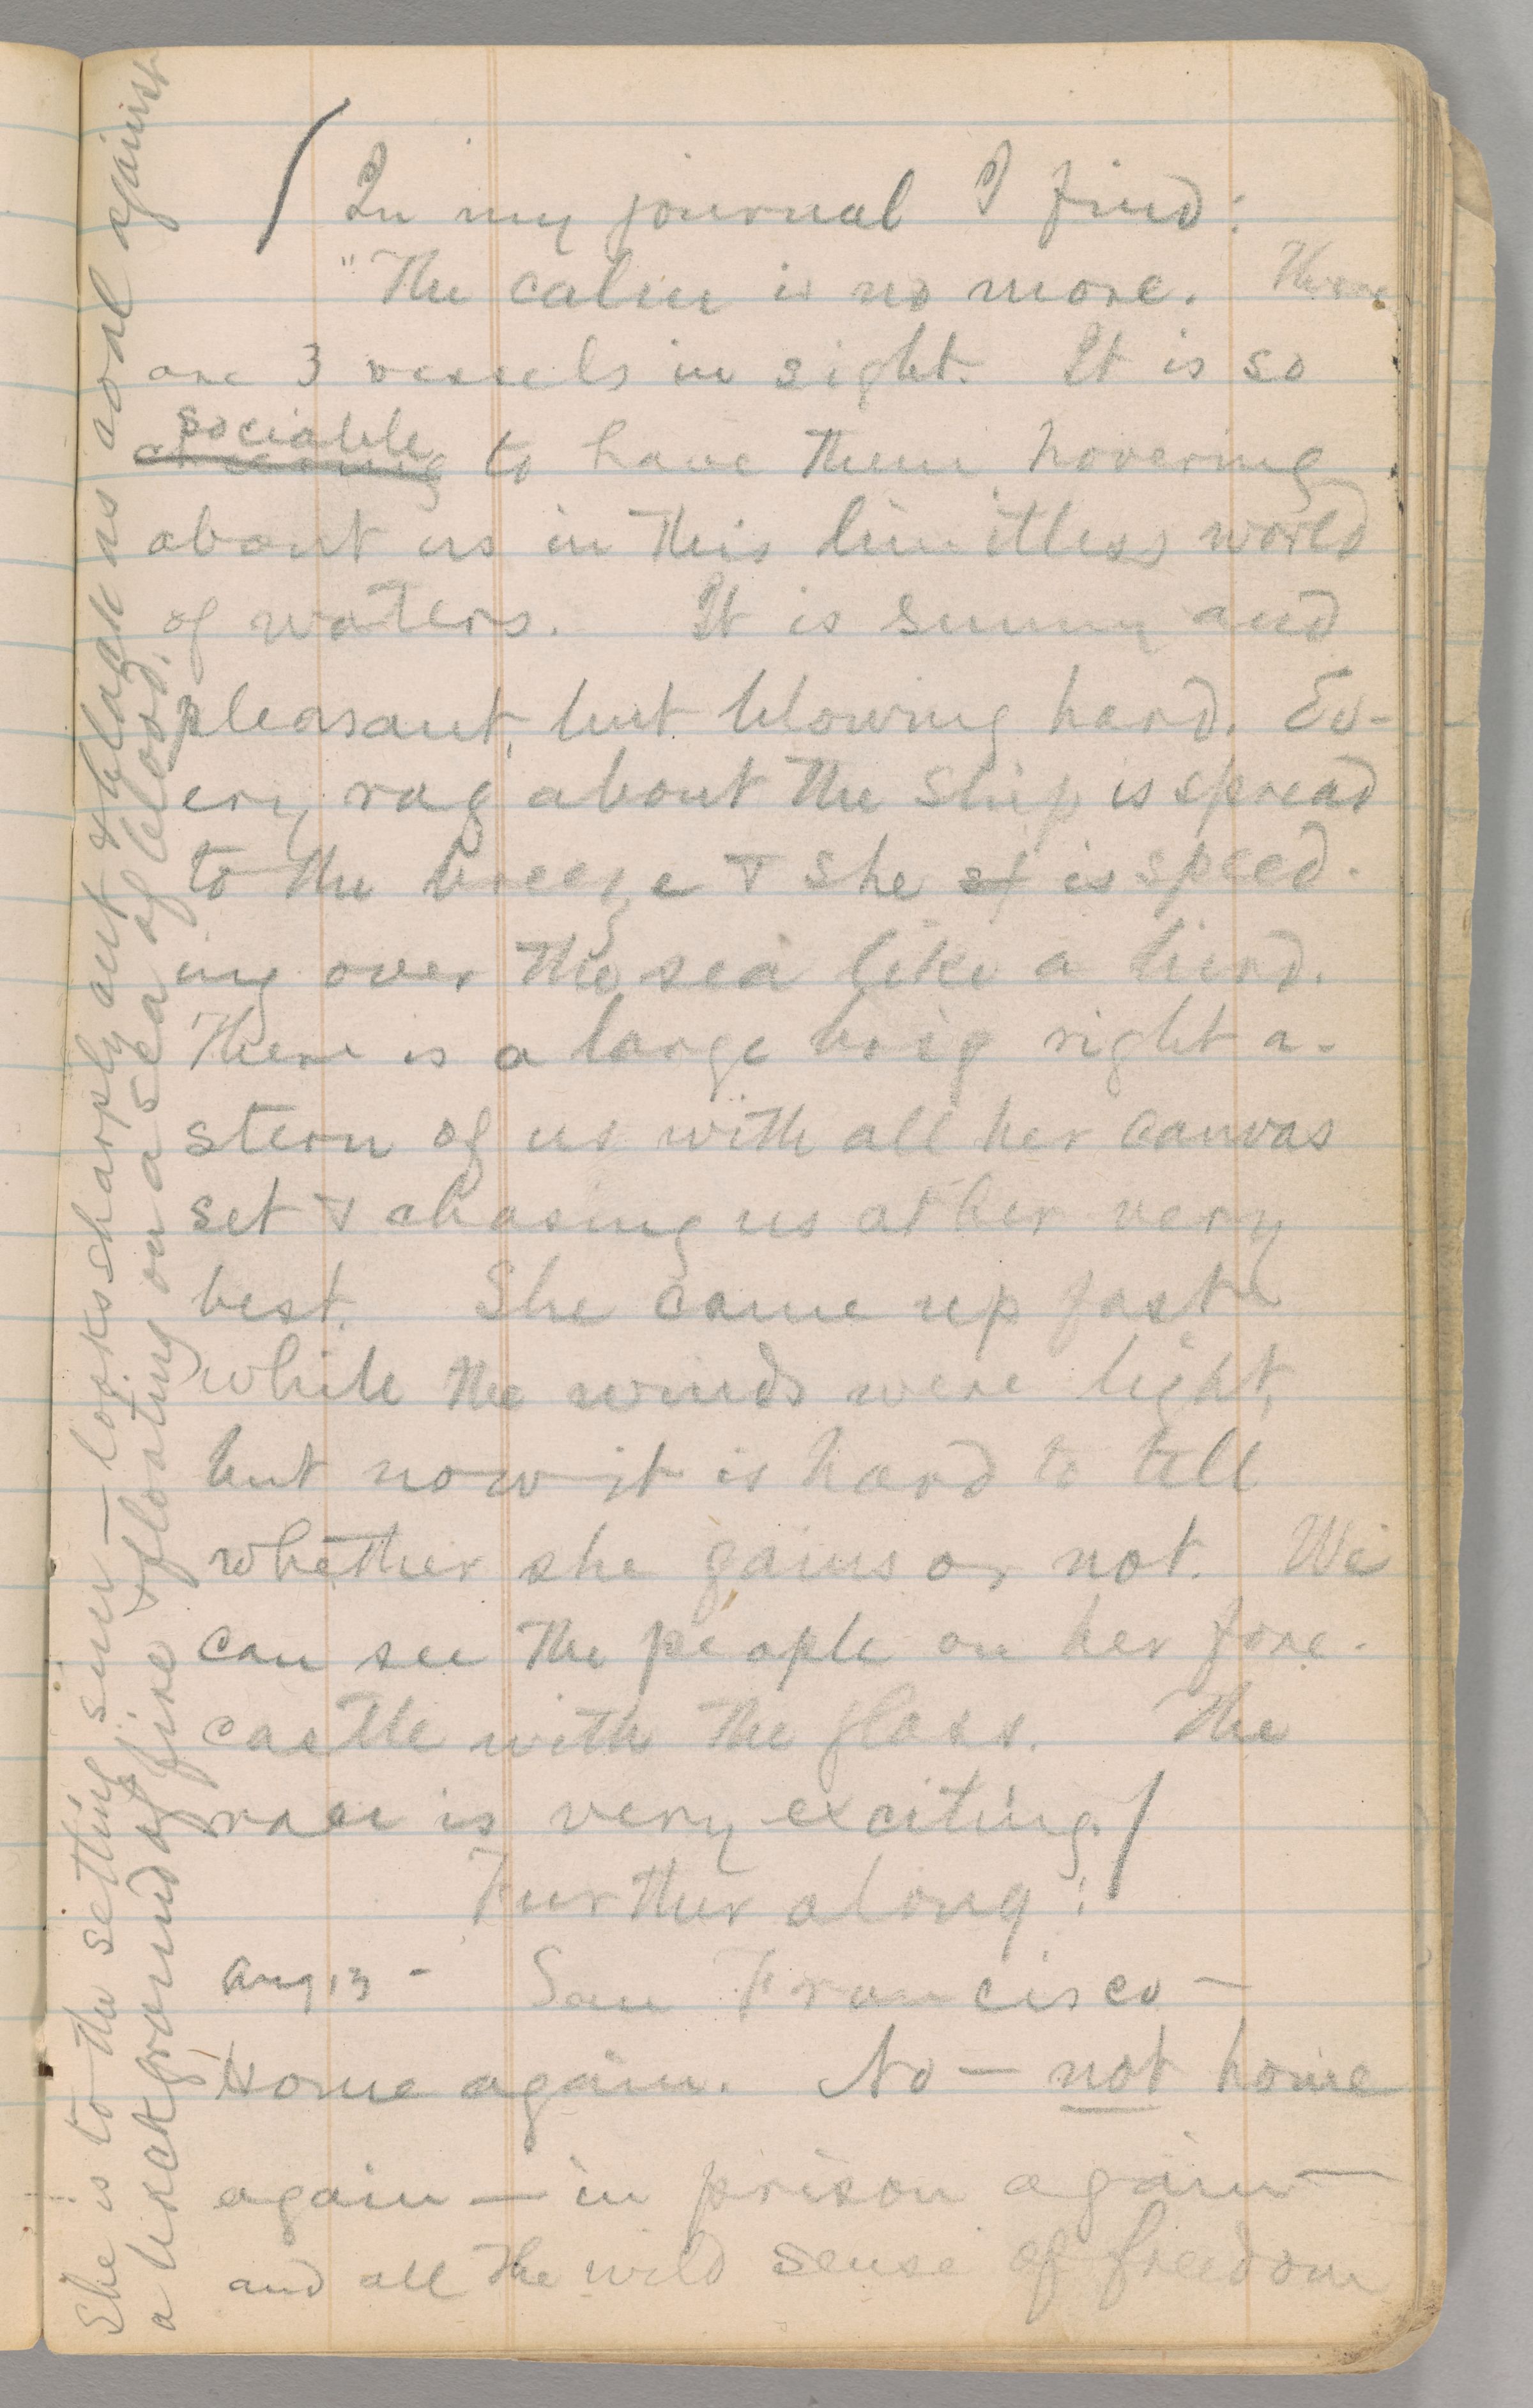 In my journal I find:
"The calm is no more. There
are 3 vessels in sight. It is so
sociable
cheering to have them hovering
about us in this limitless world
of waters. It is sunny and
pleasant, but blowing hard. Ev-
ery rag about the ship is spread
to the breeze & she sp is speed-
ing over the sea like a bird.
There is a large brig right a-
stern of us with all her canvas
set & chasing us at her very
best. She came up fast
while the winds were light,
but now it is hard to tell
whether she gains or not. We
can see the people on her fore-
castle with the glass. The
race is very exciting.
Further along:
Aug 13 - San Francisco —
Home again. No — not home
again — in prison again —
and all the wild sense of freedom
She is to the setting sun — looks sharply cut & black as coal against
a background of fire & floating on a sea of blood.